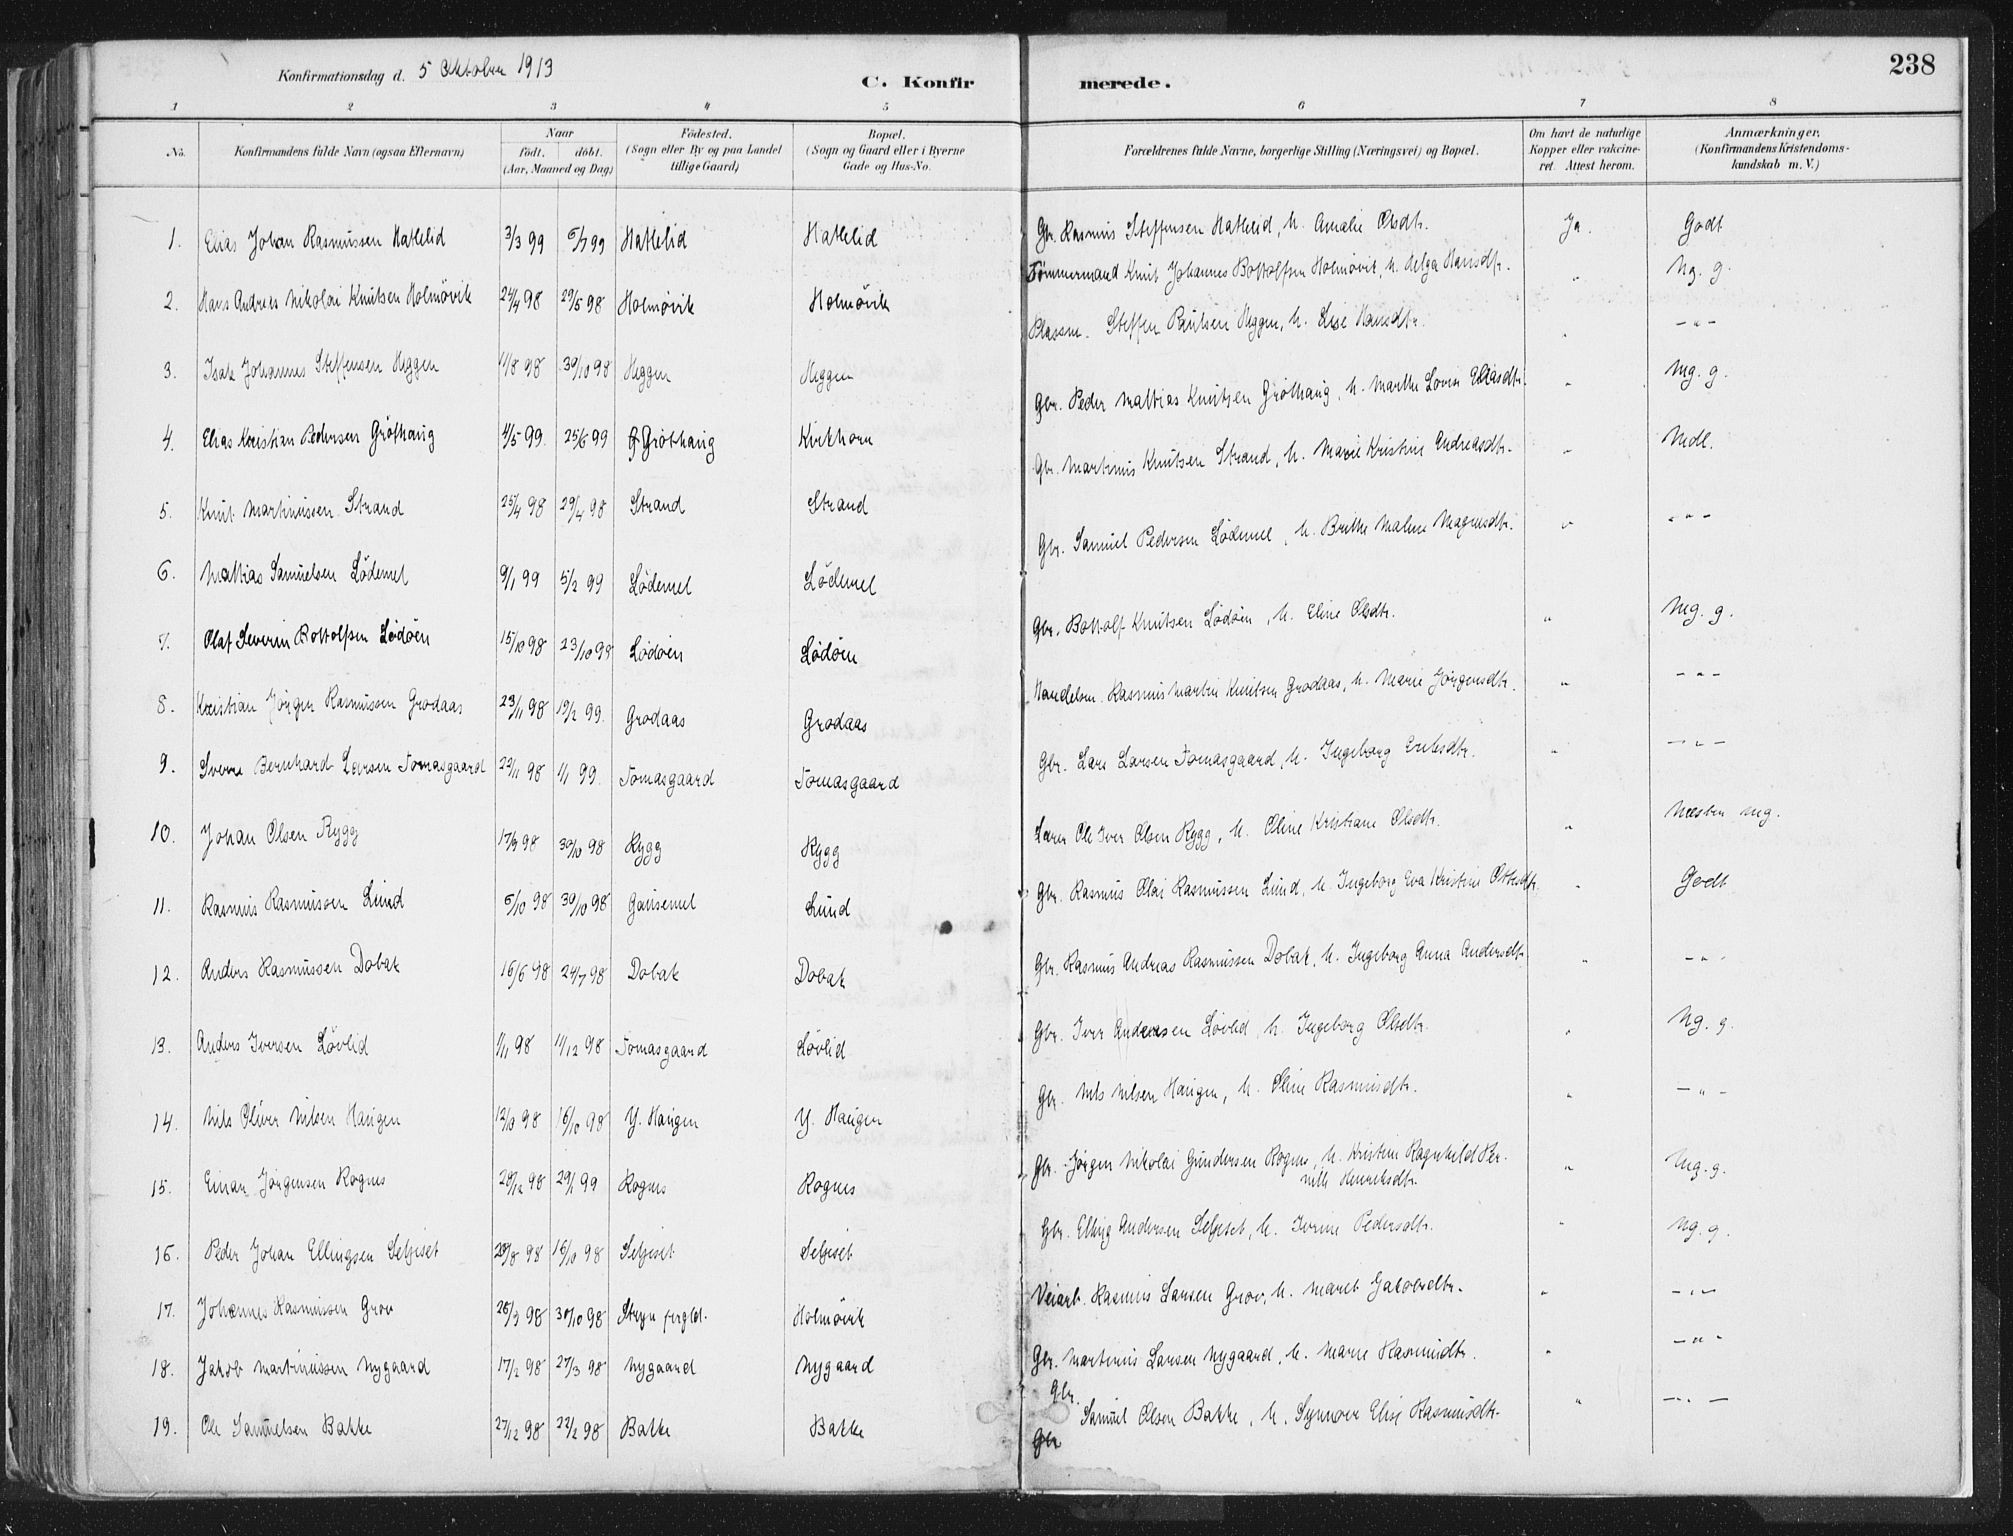 Konfirmationsdag d. 5 Oktober 1913
C. Konfir merede.
238
1 2 3 4 5 6 7 8
No. Konfirmandens fulde Navn (ogsaa Efternavn)
Naar
födt. döbt.
(Aar, Maaned og Dag)
Födested.
(Sogn eller By og paa Landet
tillige Gaard)
Bopæl.
(Sogn og Gaard eller i Byerne
Gade og Hus-No.
Forældrenes fulde Navne, borgerlige Stilling (Næringsvei) og Bopæl.
Om havt de naturlige
Kopper eller vakcine-
ret. Attest herom.
Anmærkninger.
(Konfirmandens Kristendoms-
kundskab m. V.)
1. Elias Johan Rasmussen Hatlelid 3/3 99 99 Hatlelid Hatlelid Gbr. Rasmus Steffensen Hatlelid, h. Amalie Olsdtr. Ja. Godt
2. Hans Andreas Nikolai Knutsen Holmövik 24/4 98 29/5 98 Holmövik Holmövik Tømmermand Knut Johannes Bottolfsen Holmövik, h. Helga Hansdtr. " Mg. g.
3. Isak Johannes Steffensen Heggen 11/8 98 30/10 98 Heggen Heggen Plassm. Steffen Paulsen Heggen, h. Lise Hansdtr. " - " -
4. Elias Kristian Pedersen Gröthaug 4/5 99. 25/6 99 Gröthaug Kirkhorn Gbr. Peder Mattias Knutsen Gröthaug, h. Marthe Lovise Eliasdtr. " Mg. g.
5. Knut Martinussen Strand 25/4 98 29/4 98 Strand Strand Gbr. Martinus Knutsen Strand, h. Marie Kristine Andreasdtr. " Mdl.
6. Mattias Samuelsen Lödemel 9/1 99 5/2 99 Lödemel Lödemel Gbr. Samuel Pedersen Lödemel, h. Brithe Malene Magnusdtr. " " " "
7. Olaf Severin Bottolfsen Lödöen 15/10 98 23/10 98 Lödöen Lödöen Gbr. Bottolf Knutsen Lödöen, h. Eline Olsdtr. " Mg. g.
8. Kristian Jörgen Rasmussen Grodaas 23/11 98 19/2 99. Grodaas Grodaas Handelsm. Rasmus Martin Knutsen Grodaas, h. Marie Jörgensdtr. " - " -
9. Sverre Bernhard Larsen Tomasgaard 23/11 98 1/1 99. Tomasgaard Tomasgaard Gbr. Lars Larsen Tomasgaard, h. Ingeborg Eriksdtr. " - " -
10. Johan Olsen Rygg 17/9 98 30/10 98 Rygg Rygg Lærer Ole Iver Olsen Rygg, h. Oline Kristiane Olsdtr. " Næsten mg.
11. Rasmus Rasmussen Lund 5/10 98 30/10 98 Gausemel Lund Gbr. Rasmus Olai Rasmussen Lund, h. Ingeborg Eva Kristine " Godt
12. Anders Rasmussen Dobak 16/6 98 24/7 98 Dobak Dobak Gbr. Rasmus Andreas Rasmussen Dobak, h. Ingeborg Anna Andersdtr. " - " -
13. Anders Iversen Lövlid 1/11 98 11/12 98 Tomasgaard Lövlid Gbr. Iver Andersen Lövlid, h. Ingeborg Olsdtr. " Mg. g.
14. Nils Oliver Nilsen Haugen 12/10 98 16/10 98 Y. Haugen Y. Haugen Gbr. Nils Nilsen Haugen, h. Oline Rasmusdtr. " - " -
15. Einar Jörgensen Rognes 28/12 98 29/1 99 Rognes Rognes Gbr. Jörgen Nikolai Gundersen Rognes, h. Kristine Ragnhild Per-
nille Henriksdtr. " Mg. g.
16. Peder Johan Ellingsen Seljeset 28/8 98 16/10 98 Seljeset Seljeset Gbr. Elling Andersen Seljeset, h. Iverine Pedersdtr. " Mg. g.
17. Johannes Rasmussen Grov 26/9 98 30/10 98 Stryn prgld. Holmövik Veiarb. Rasmus Larsen Grov, h. Maret Jakobsdtr. " - " -
18. Jakob Martinussen Nygaard 17/2 98 27/3 98 Nygaard Nygaard Gbr. Martinus Larsen Nygaard, h. Marie Rasmusdtr. " - " -
19. Ole Samuelsen Bakke 27/12 98 22/2 98 Bakke Bakke Gbr. Samuel Olsen Bakke, h. Synnöve Elise Rasmusdtr. " - " -
Gbr